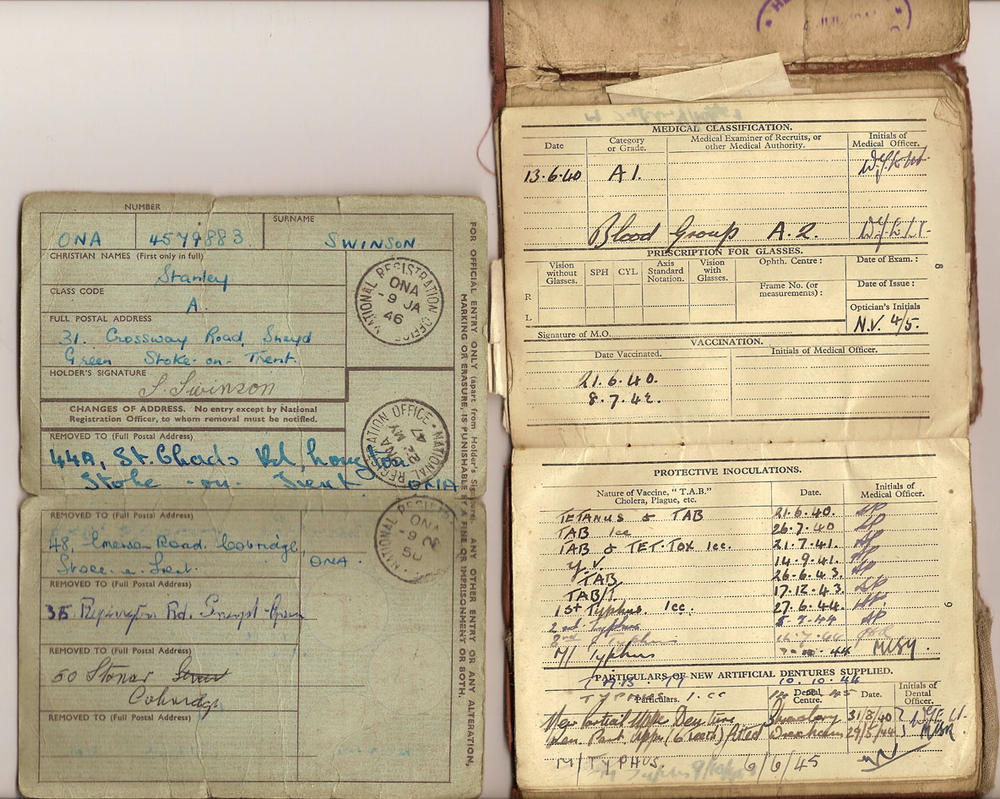 NUMBER
SURNAME
ONA 4579883 SWINSON
CHRISTIAN NAMES (First only in full)
Stanley
CLASS CODE
A.
FULL POSTAL ADDRESS
31. Crossway Road, Sneyd
Green Stoke-on-Trent.
HOLDER'S SIGNATURE
S. Swinson
CHANGES OF ADDRESS. No entry except by National
Registration Officer, to whom removal must be notified.
REMOVED TO (Full Postal Address)
44A, St. Chads Rd,
Stoke - on - Trent ONA
REMOVED TO (Full Postal Address)
48, Emerson Road. Cobridge,
ONA.
REMOVED TO (Full Postal Address)
Rd.
REMOVED TO (Full Postal Address)
60 Stoner Street
Cobridge
REMOVED TO (Full Postal Address)
NATIONAL REGISTRATION OFFICE
ONA
-9 JA
46
NATIONAL REGISTRATION OFFICE
ONA
MY
47
ONA
-9
50
FOR OFFICIAL ENTRY ONLY (apart from Holder's Signature). ANY OTHER ENTRY OR ANY ALTERATION,
MARKING OR ERASURE, IS PUNISHABLE BY A FINE OR IMPRISONMENT OR BOTH.
MEDICAL CLASSIFICATION.
Date
Category
or Grade.
Medical Examiner of Recruits, or
other Medical Authority.
Initials of
Medical Officer.
13.6.40 A1.
Blood Group A.2.
PRESCRIPTION FOR GLASSES.
Vision
without
Glasses.
SPH
CYL
Axis
Standard
Notation.
Vision
with
Glasses.
Ophth. Centre :
Frame No. (or
measurements) :
Date of Exam. :
Date of Issue :
Optician's Initials
N.V. 4/5.
R
L
Signature of M.O.
VACCINATION.
Date Vaccinated.
Initials of Medical Officer.
21.6.40.
8.7.42.
8
PROTECTIVE INOCULATIONS.
Nature of Vaccine, "T.A.B."
Cholera, Plague, etc.
Date.
Initials of
Medical Officer.
TETANUS & TAB 21.6.40.
TAB 1cc 26.7.40
TAB & TET.TOX 1cc. 21.7.41.
Y.V. 14.9.41.
TAB 26.6.43.
TAB/T. 17.12.43.
1st Typhus 1cc. 27.6.44.
2nd Typhus 5.7.44
Typhus
M/ Typhus 44
9
PARTICULARS OF NEW ARTIFICIAL DENTURES SUPPLIED.
10.10.44
TYPHUS 1.cc
Particulars.
Dental
Centre.
Date.
Initials of
Dental
Officer.
New Partial Upper Denture Shrewsbury 31/8/40
Part Upper (6 teeth) fitted Wrexham 29/5/44
M/TYPHUS. 6/6/45